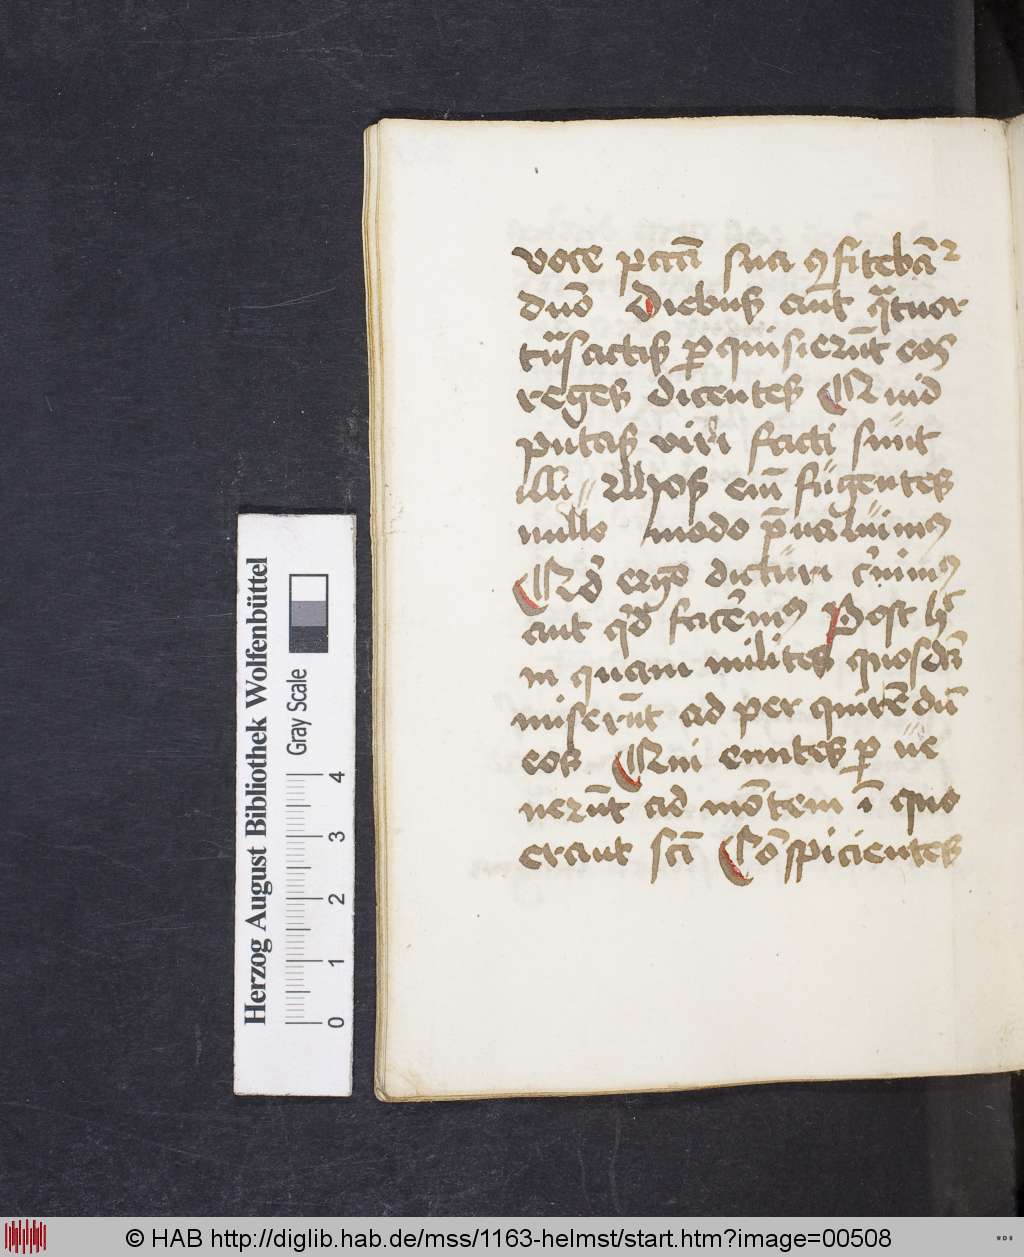 voce pctā sua ꝯfitebāt᷑
duo Diebus aūt qͣtuor
tͣnsactis ꝑquisierūt eos
reges dicentes Quid
putas viri facti sunt
illi illos eīm fugentes
nullo modo p̄ualuimꝰ
Qd̓ ergo dicturi ẽimꝰ
aut qd̓ facẽmꝰ Post
m quam milites quosdā
miserūt ad per quirēdū
eos Qui euntes ꝑ ue
nerūt ad mōtem ī quo
erant scī Cōspicientes
Herzog August Bibliothek Wolfenbüttel
Gray Scale
0 1 2 3 4
© HAB http://diglib.hab.de/mss/1163-helmst/start.htm?image=00508